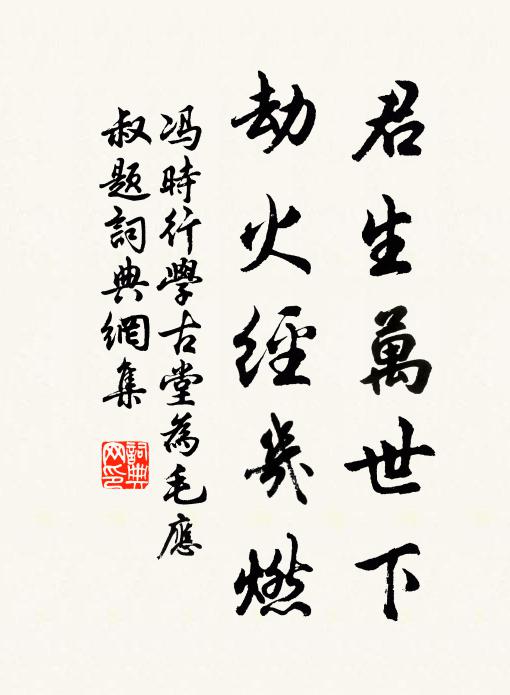 君生萬世下
劫火經幾燃
冯時行學古堂為毛應
叔题詞典網集
詞典
网印